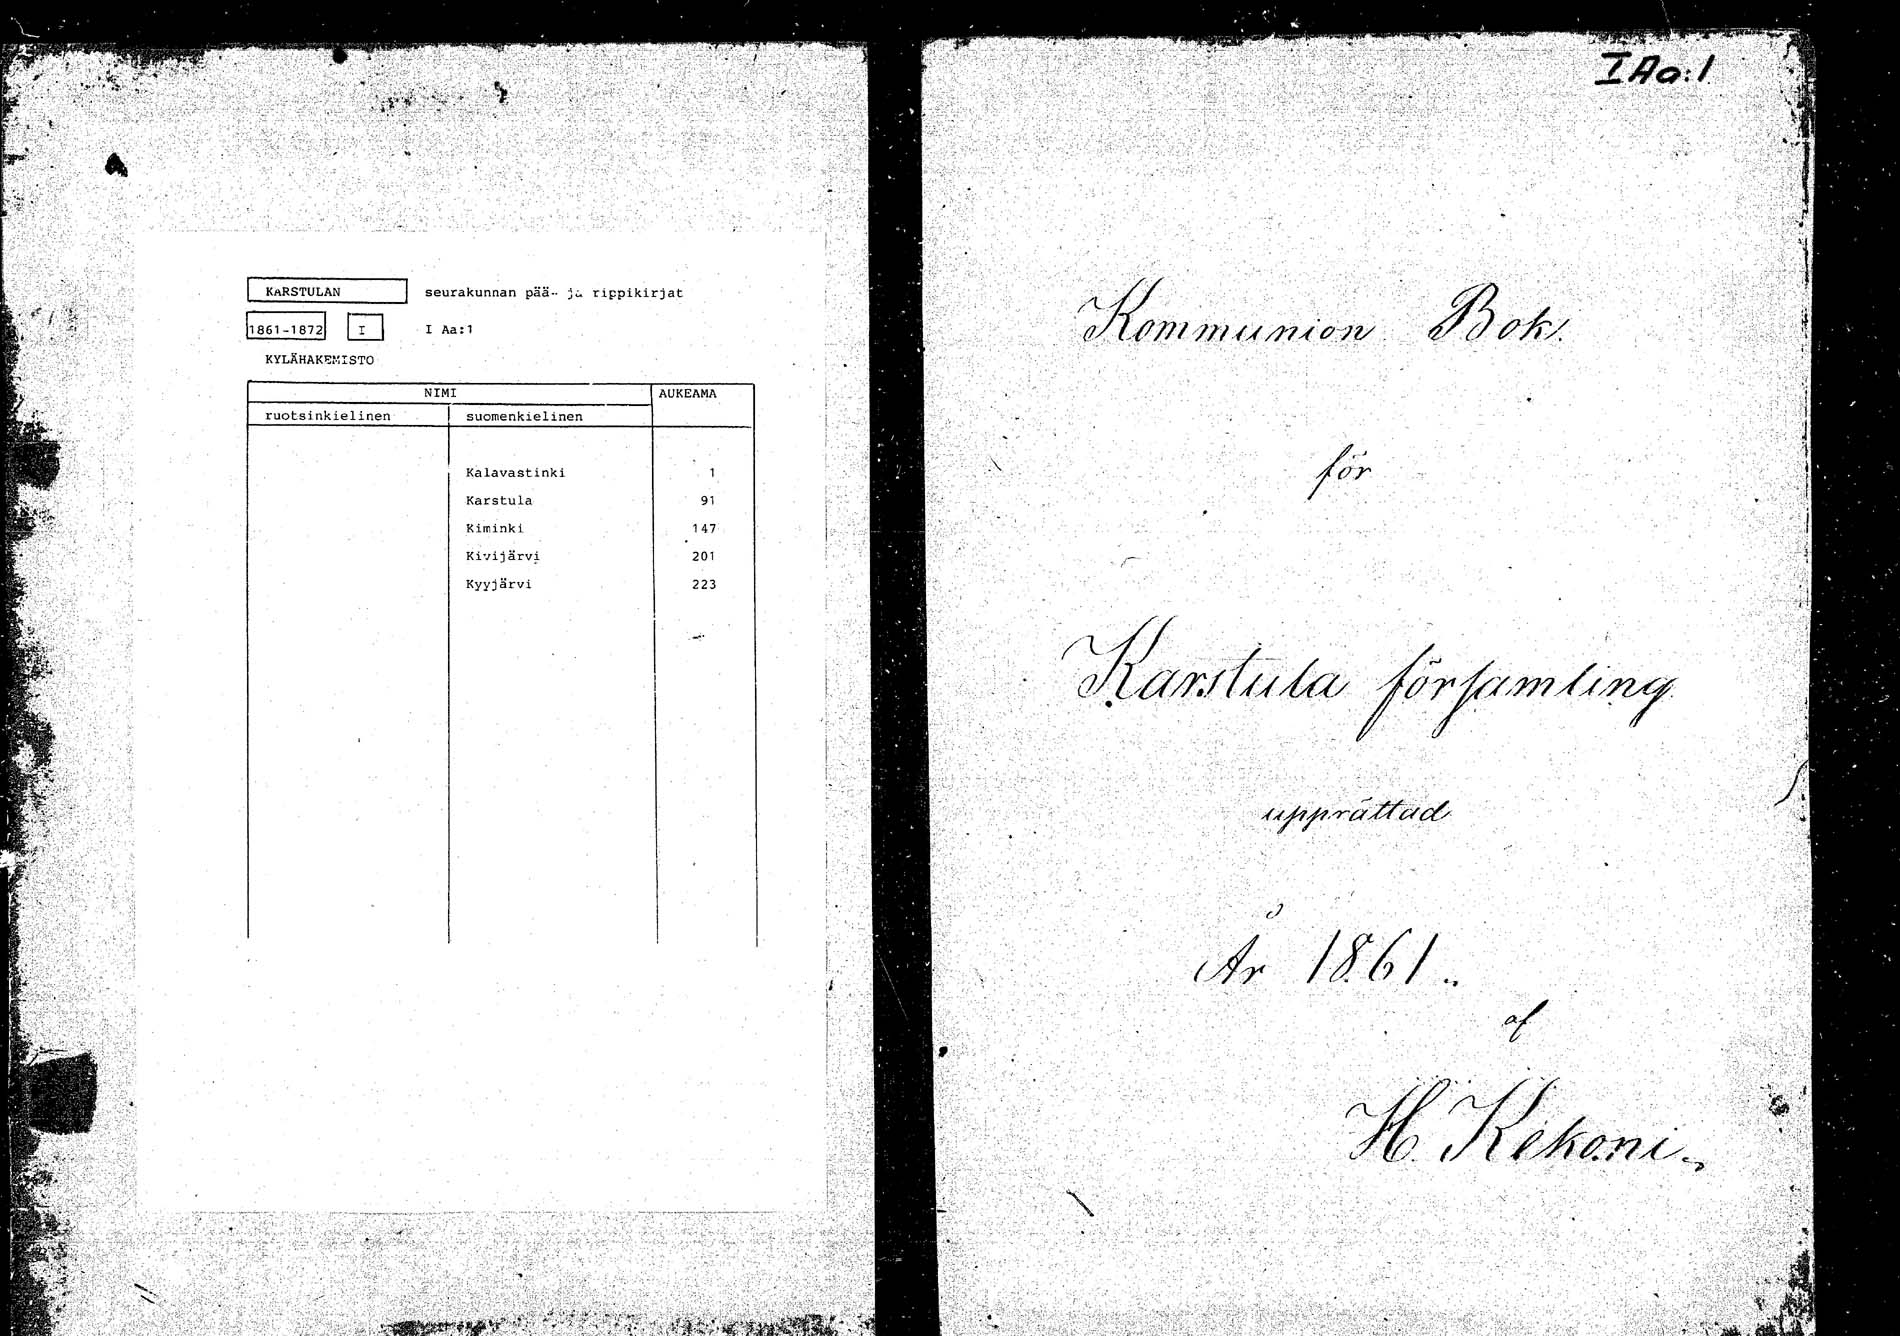 KARSTULAN seurakunnan pää- ja rippikirjat
1861-1872 I I Aa:1
KYLÄHAKEMISTO
NIMI AUKEAMA
ruotsinkielinen suomenkielinen
Kalavastinki 1
Karstula 91
Kiminki 147
Kivijärvi 201
Kyyjärvi 223
I Aa:1
Kommunion Bok.
för
Karstula församling
upprättad
År 1861.
af
H. Kekoni.